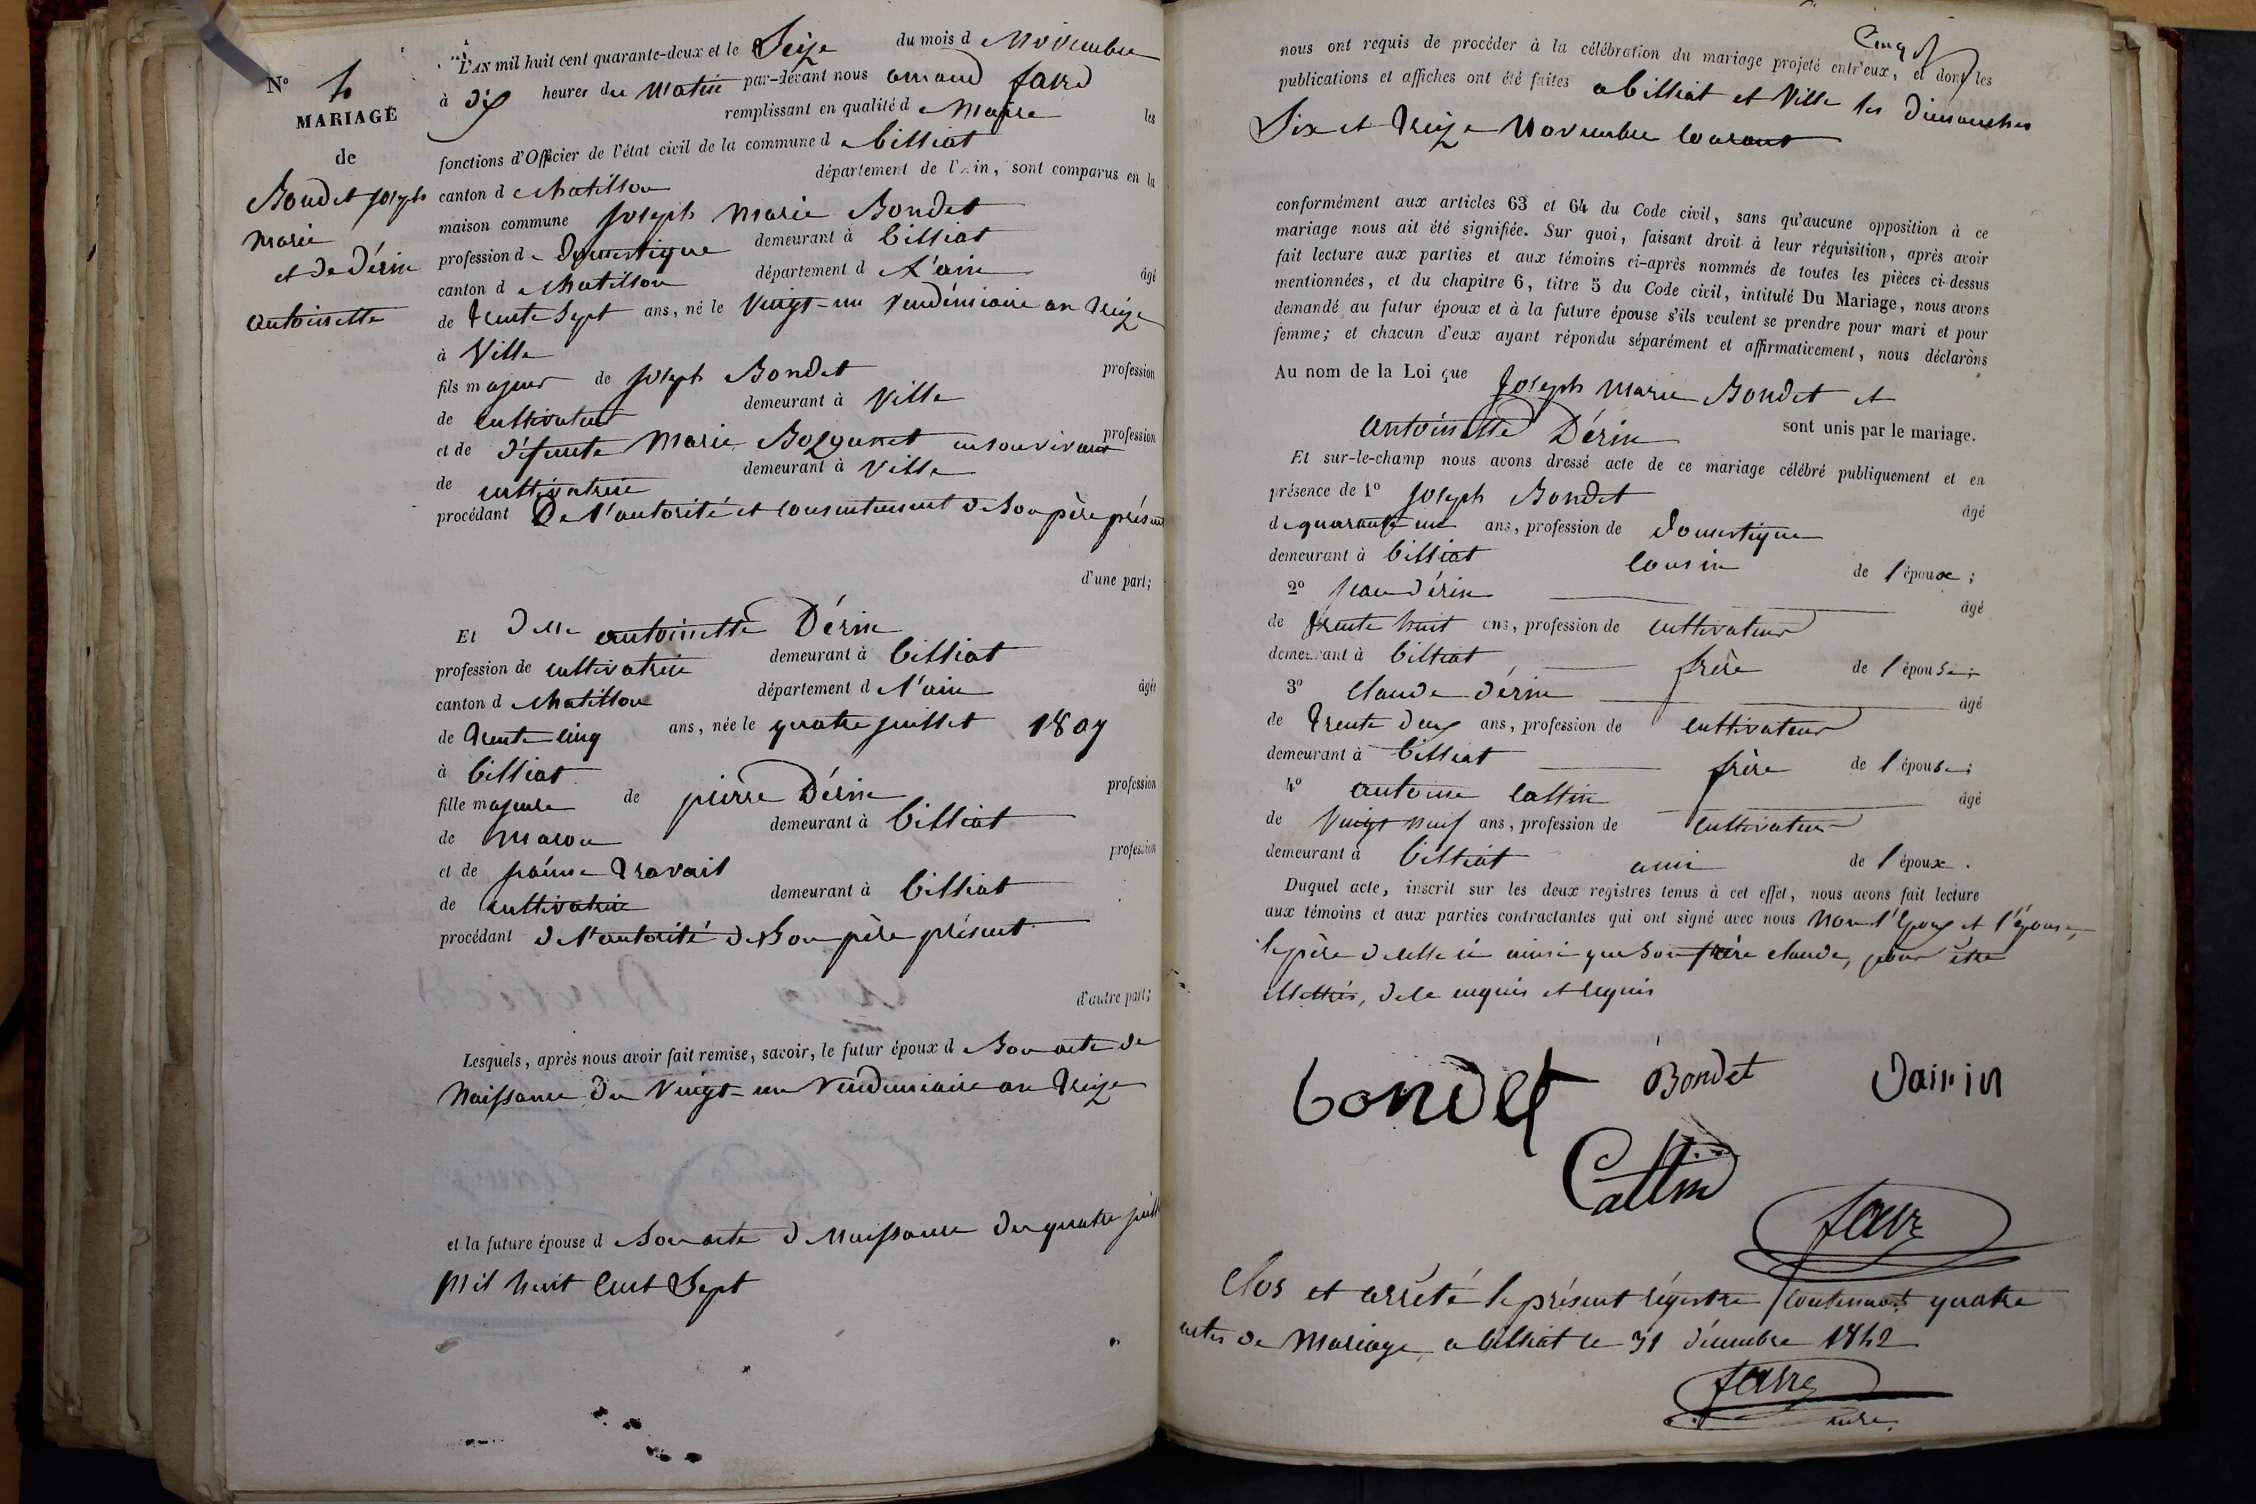 N° 4
MARIAGE
de
Bondet joseph
marie
et de Dérin
antoinette
L'AN mil huit cent quarante-deux et le Seize du mois de Novembre
à dix heures du matin par-devant nous amand favre
remplissant en qualité de Maire les
fonctions d'Officier de l'état civil de la commune de billiat
canton de chatillon département de l'Ain, sont comparus en la
maison commune joseph Marie Bondet
profession de Domestique demeurant à billiat
canton de chatillon département de L'ain âgé
de trente Sept ans, né le Vingt-un Vendémiaire an treize
à Ville
fils majeur de joseph Bondet profession
de cultivateur demeurant à Ville
et de défunte Marie Bozonnet en son vivant profession
de cultivatrice demeurant à Ville
procédant De l'autorité et consentement de Son père présent
d'une part;
Et Delle antoinette Dérin
profession de cultivatrice demeurant à billiat
canton de chatillon département de l'ain âgée
de trente cinq ans, née le quatre juillet 1807
à billiat
fille majeure de pierre Dérin profession
de maçon demeurant à billiat
et de travail profession
de cultivatrice demeurant à billiat
procédant de l'autorité de Son père présent
d'autre part;
Lesquels, après nous avoir fait remise, savoir, le futur époux de Son acte de
Naissance Du Vingt-un Vendemiaire an treize
et la future épouse de Son acte de Naissance du quatre juillet
Mil huit Cent Sept
nous ont requis de procéder à la célébration du mariage projeté entr'eux, et dont les
publications et affiches ont été faites a billiat et Ville les Dimanches
Six et treize Novembre courant
conformément aux articles 63 et 64 du Code civil, sans qu'aucune opposition à ce
mariage nous ait été signifiée. Sur quoi, faisant droit à leur réquisition, après avoir
fait lecture aux parties et aux témoins ci-après nommés de toutes les pièces ci-dessus
mentionnées, et du chapitre 6, titre 5 du Code civil, intitulé Du Mariage, nous avons
demandé au futur époux et à la future épouse s'ils veulent se prendre pour mari et pour
femme; et chacun d'eux ayant répondu séparément et affirmativement, nous déclarons
Au nom de la Loi que Joseph Marie Bondet et
antoinette Dérin sont unis par le mariage.
Et sur-le-champ nous avons dressé acte de ce mariage célébré publiquement et en
présence de 1° joseph Bondet âgé
de quarante un ans, profession de Domestique
demeurant à billiat cousin de l'époux;
2° jean dérin âgé
de trente huit ans, profession de cultivateur
demeurant à billiat, frère de l'épouse;
3° claude dérin âgé
de trente deux ans, profession de cultivateur
demeurant à billiat frère de l'épouse;
4° antoine Cattin âgé
de Vingt neuf ans, profession de cultivateur
demeurant à billiat ami de l'époux.
Duquel acte, inscrit sur les deux registres tenus à cet effet, nous avons fait lecture
aux témoins et aux parties contractantes qui ont signé avec nous Non l'époux et l'épouse,
le père de celle ci ainsi que Son frère claude, pour être
illettrés, de ce enquis et requis
bondet Bondet Dairin
Cattin
favre
Clos et arrêté le présent régistre contenant quatre
actes de Mariage, a billiat le 31 décembre 1842
favre